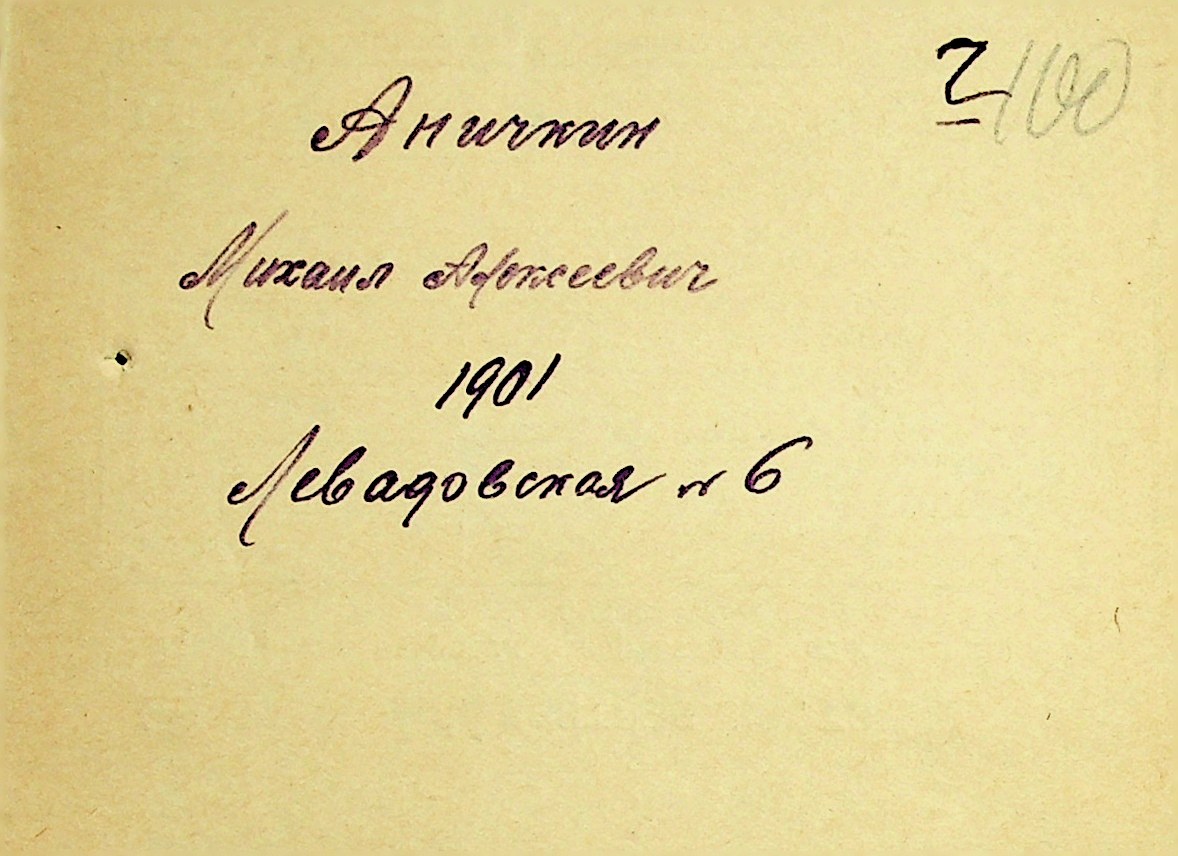 7 100
Аничкин
Михаил Алексеевич
1901
Левадовская № 6